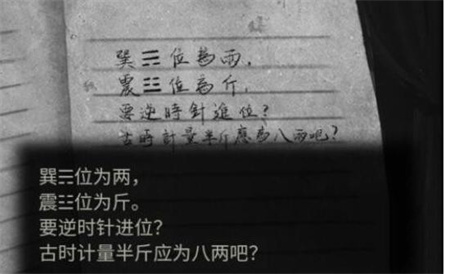 巽☴位為両，
震☳位為斤，
要逆時針進位？
古時計量半斤應為八両吧？
巽☴位为两，
震☳位为斤。
要逆时针进位？
古时计量半斤应为八两吧？